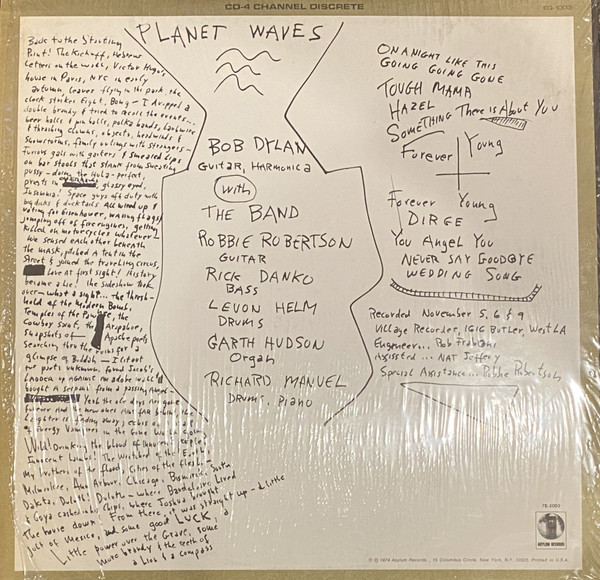 CD-4 CHANNEL DISCRETE
EQ-1003
PLANET WAVES
Back to the Starting
Point! The Kickoff, Hebrew
Letters on the wall, Victor Hugo's
house in Paris, NYC in early
autumn, leaves flying in the park, the
clock strikes Eight, Bong — I dropped a
double brandy & tried to recall the events...
beer halls & pin balls, polka bands, barbwire
& thrashing clowns, objects, headwinds &
snowstorms, family outings with strangers —
Furious gals with garters & smeared lips
on bar stools that stank from sweating
pussy — doing the Hula — perfect,
priests in glassy eyed,
Insomnia! Space guys off duty with
big dicks & ducktails All wired up &
voting for Eisenhower, waving flags &
jumping off of fire engines, getting
Killed on motorcycles whatever —
We sensed each other beneath
the mask, pitched a tent in the
Street & joined the travelling circus,
Love at first sight! History
became a lie! the sideshow took
over — what a sight... the thresh-
hold of the Modern Bomb,
Temples of the Pawnee, the
Cowboy Saint, the Airplane,
Snapshots of — Apache poets
searching thru the ruins for a
glimpse of Buddah — I lit out
for parts unknown, found Jacob's
Ladder up against an adobe wall &
bought a serpent from a passing Angel
Yeah the ole days are gone
forever And the new ones Aint far behind, the
Laughter is fading away, echos of a
of Energy Vampires in the Gone
Wild! Drinking the blood of innocent people
Innocent Lambs! The Wretched of the Earth,
My brothers of the flood, Cities of the flesh —
Milwaukee, Ann Arbor, Chicago, Bismarck, South
Dakota, Duluth! Duluth — where Baudelaire Lived
& Goya cashed in his Chips, where Joshua brought
The house down! From there, it was straight up — a little
jolt of Mexico, and some good LUCK, a
Little power over the Grave, some
more brandy & the teeth of
a lion & a compass
BOB DYLAN
GUITAR, HARMONICA
With
THE BAND
ROBBIE ROBERTSON
GUITAR
RICK DANKO
BASS
LEVON HELM
DRUMS
GARTH HUDSON
Organ
RICHARD MANUEL
DRUMS, piano
ON A NIGHT LIKE THIS
GOING GOING GONE
TOUGH MAMA
HAZEL
SOMETHING There is About You
Forever Young
Forever Young
DIRGE
You Angel You
NEVER SAY GOODBYE
WEDDING SONG
Recorded November 5, 6 & 9
Village Recorder, 1616 Butler, West LA
Engineer... Rob Fraboni
Assisted... NAT Jeffery
Special Assistance... Robbie Robertson
7E-1003
ASYLUM RECORDS
© ℗ 1974 Asylum Records, 15 Columbus Circle, New York, N.Y. 10023. Printed in U.S.A.